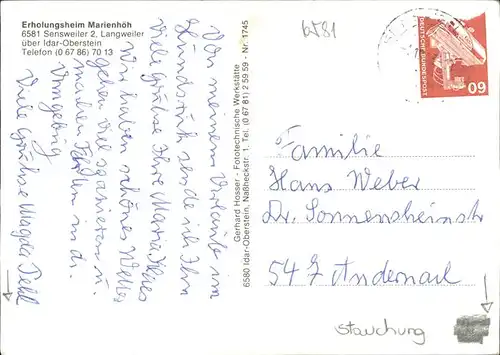 Erholungsheim Marienhöh
6581 Sensweiler 2, Langweiler
über Idar-Oberstein
Telefon (0 67 86) 70 13
6581
DEUTSCHE BUNDESPOST
60
Von meinem Urlaube im
Hunsrück sende ich Ihnen
Viele Grüße Ihre Maria
Wir haben schönes Wetter
gehen viel spazieren u.
machen Fahrten in der
Umgebung
Viele Grüße Magda
Gerhard Hosser - Fototechnische Werkstätte
6580 Idar-Oberstein, Naßheckstr. 1, Tel. (0 67 81) 2 59 59 - Nr. 1745
Familie
Hans Weber
Dr. Sonnenscheinstr
547 Andernach
Stauchung